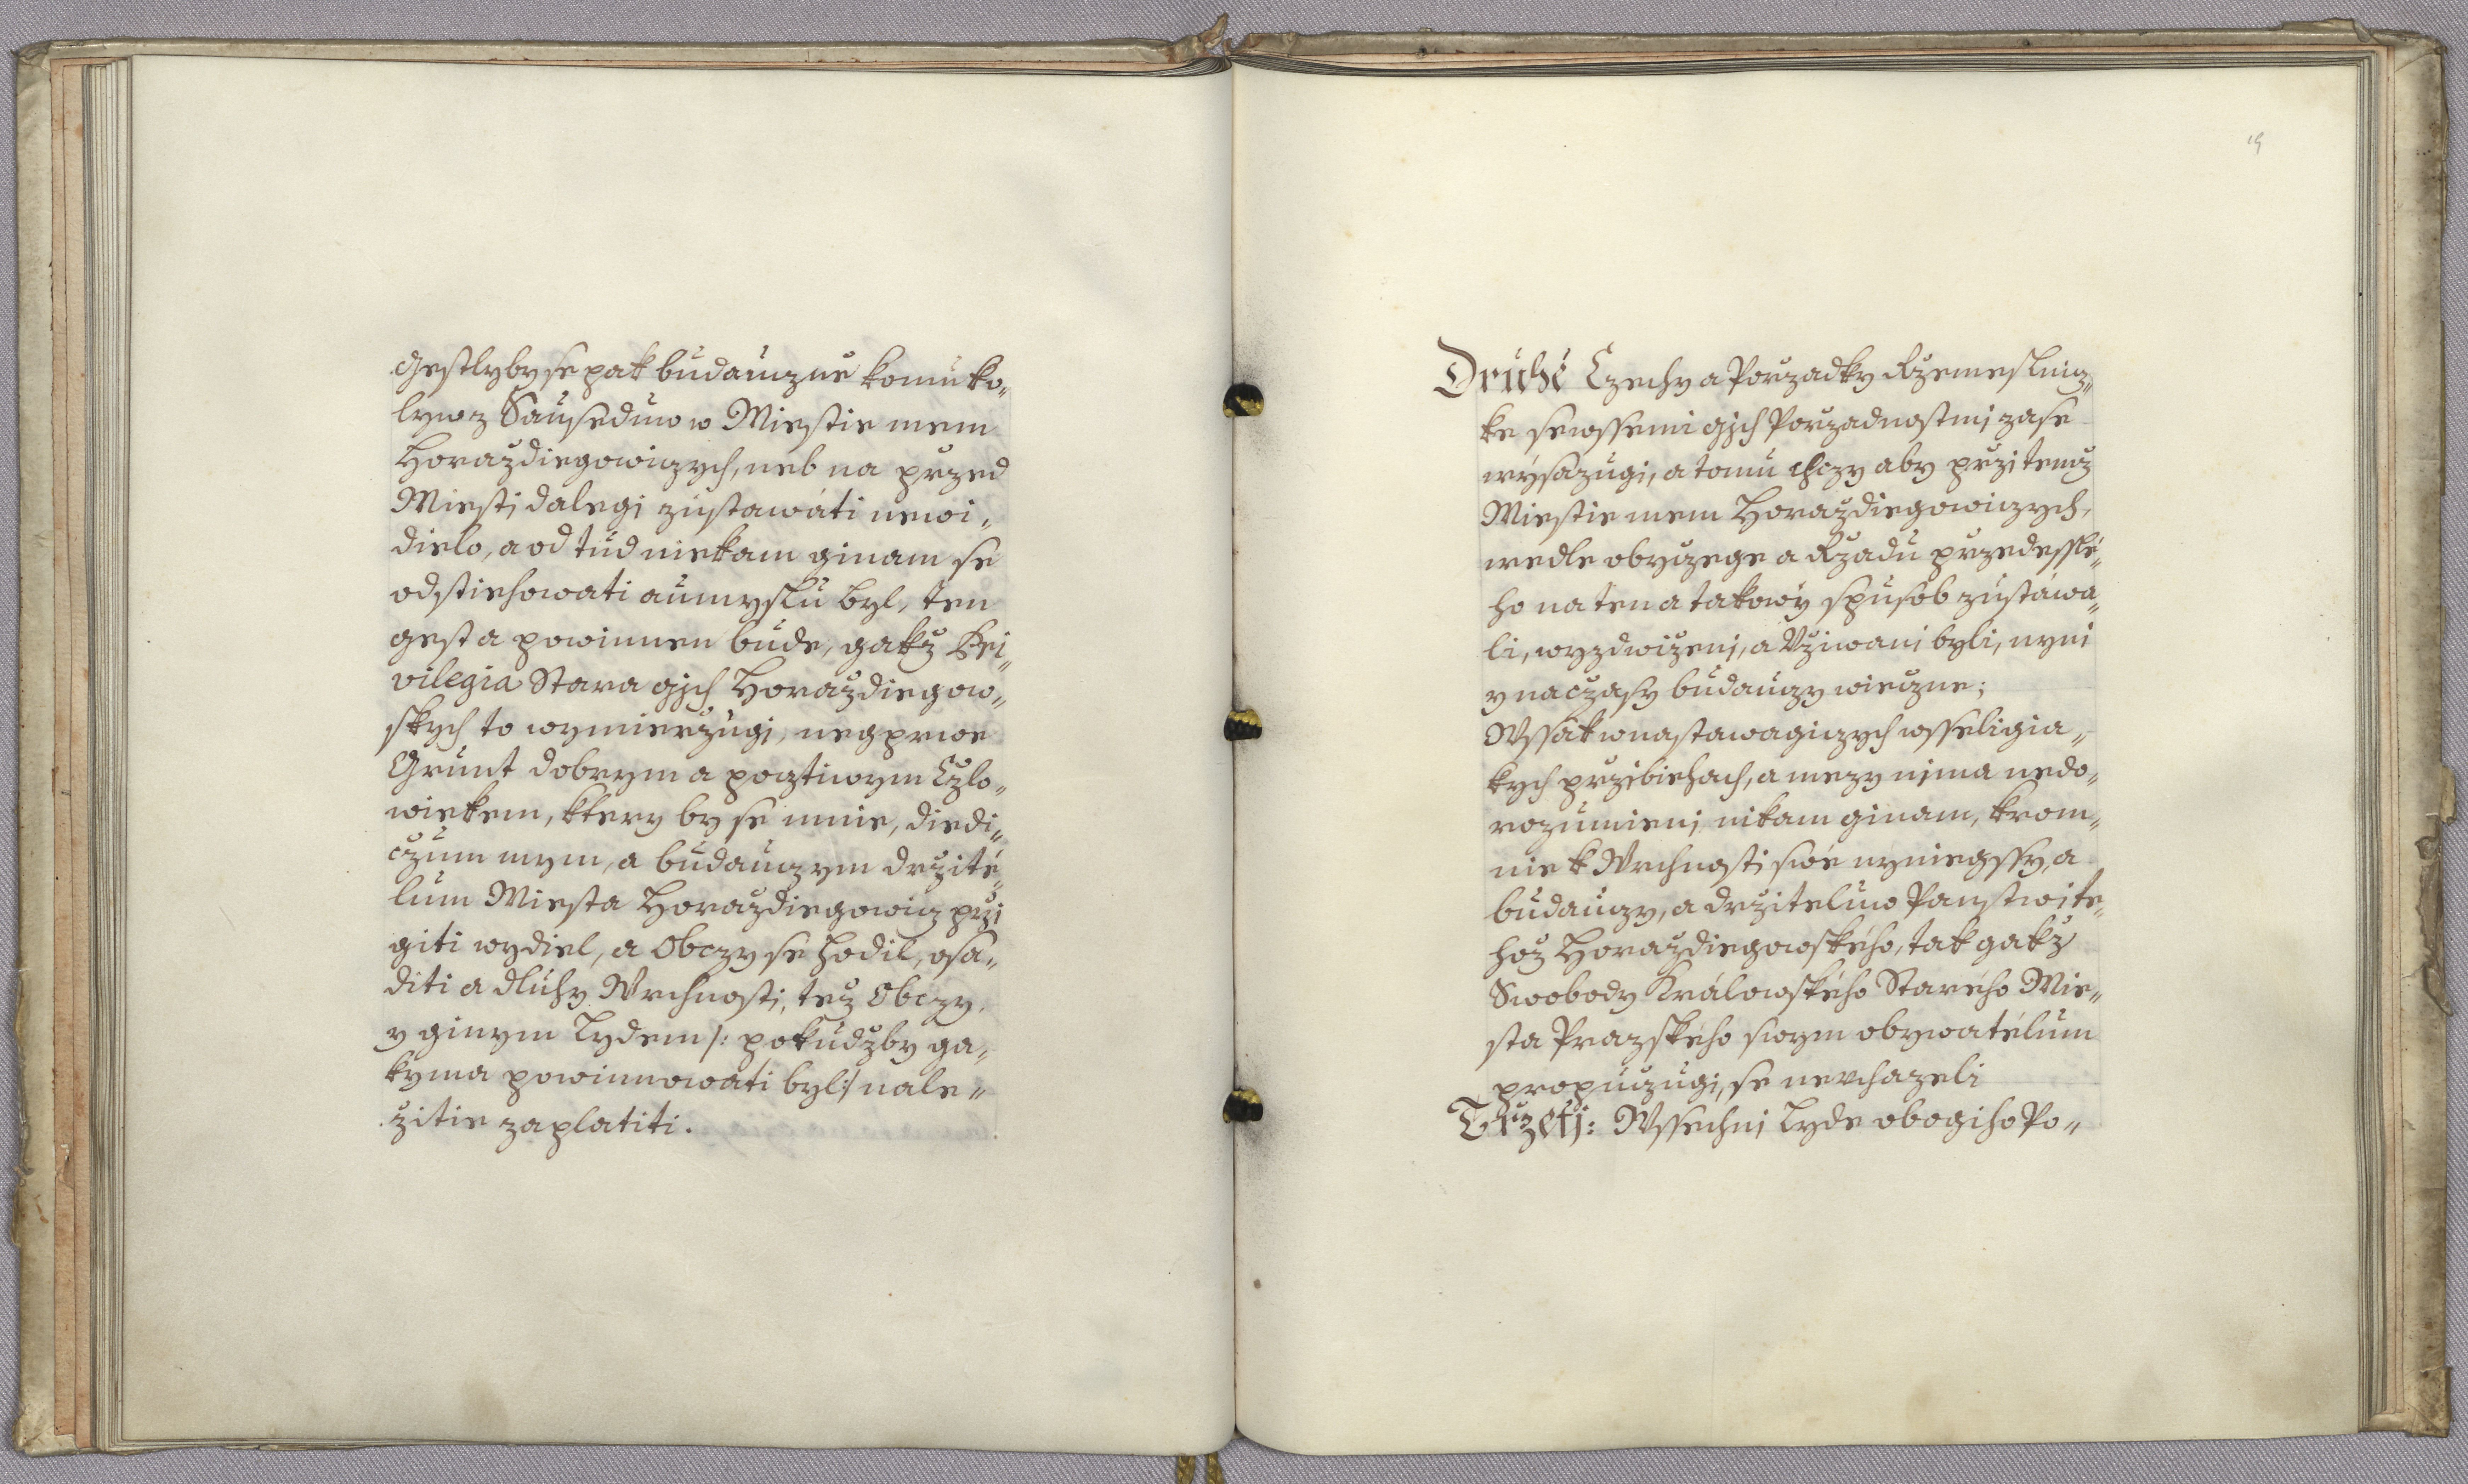 Gestlyby se pak budauczne komuko„
lyw z Sauseduw w Miestie mem
Horazdiegowiczych, neb na przed
Miesti dalegi zustawati newi„
dielo, a od tud niekam ginam se
odstiehowati aumyslu byl, ten
gest a powinnen bude, gakz Pri„
vilegia Stara gjch Horazdiegow„
skych to wymierzugi, negprwe
Grunt dobrym a pocztiwym Czlo„
wiekem, ktery by se mnie, diedi„
czum mym, a budauczym drzité„
lum Miesta Horazdiegowicz przi
giti wydiel, a Obczy se hodil, osa„
diti a dluhy Wrchnosti, tez Obczy,
y ginym Lydem /: pokudzby ga„
kyma powinnowati byl :/ nale„
zitie zaplatiti.
19
Druhé Czechy a Porzadky Rzemeslnicz„
ke sewssemi gjch Porzadnostmi zase
wysazugi, a tomu chczy aby przi temz
Miestie mem Horazdiegowiczych,
wedle obyczege a Rzadu przedesslé„
ho na ten a takowy spusob zustáwa„
li, wyzdwizeni, a Vziwani byli, nyni
y na czasy budauczy wieczne;
Wssak w nastawagiczych wsseligia„
kych przibiehach, a mezy nima nedo„
rozumieni nikam ginam, krom„
nie k Wrchnosti swé nyniegssy, a
budauczy, a drzitelum Panstwi te„
hoz Horazdiegowského, tak gakz
Swobody Králowského Starého Mie„
sta Prazského swym obywatélum
propuczugi, se nevchazeli
Trzeti: Wssechni Lyde obogiho Po„